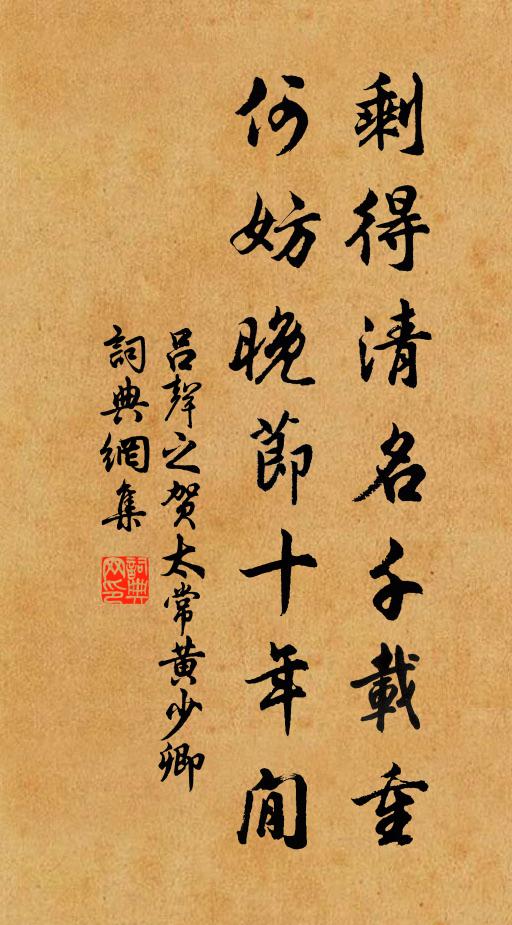 剩得清名千載重
何妨晚節十年閒
呂聲之賀太常黄少卿
詞典網集
詞典網印